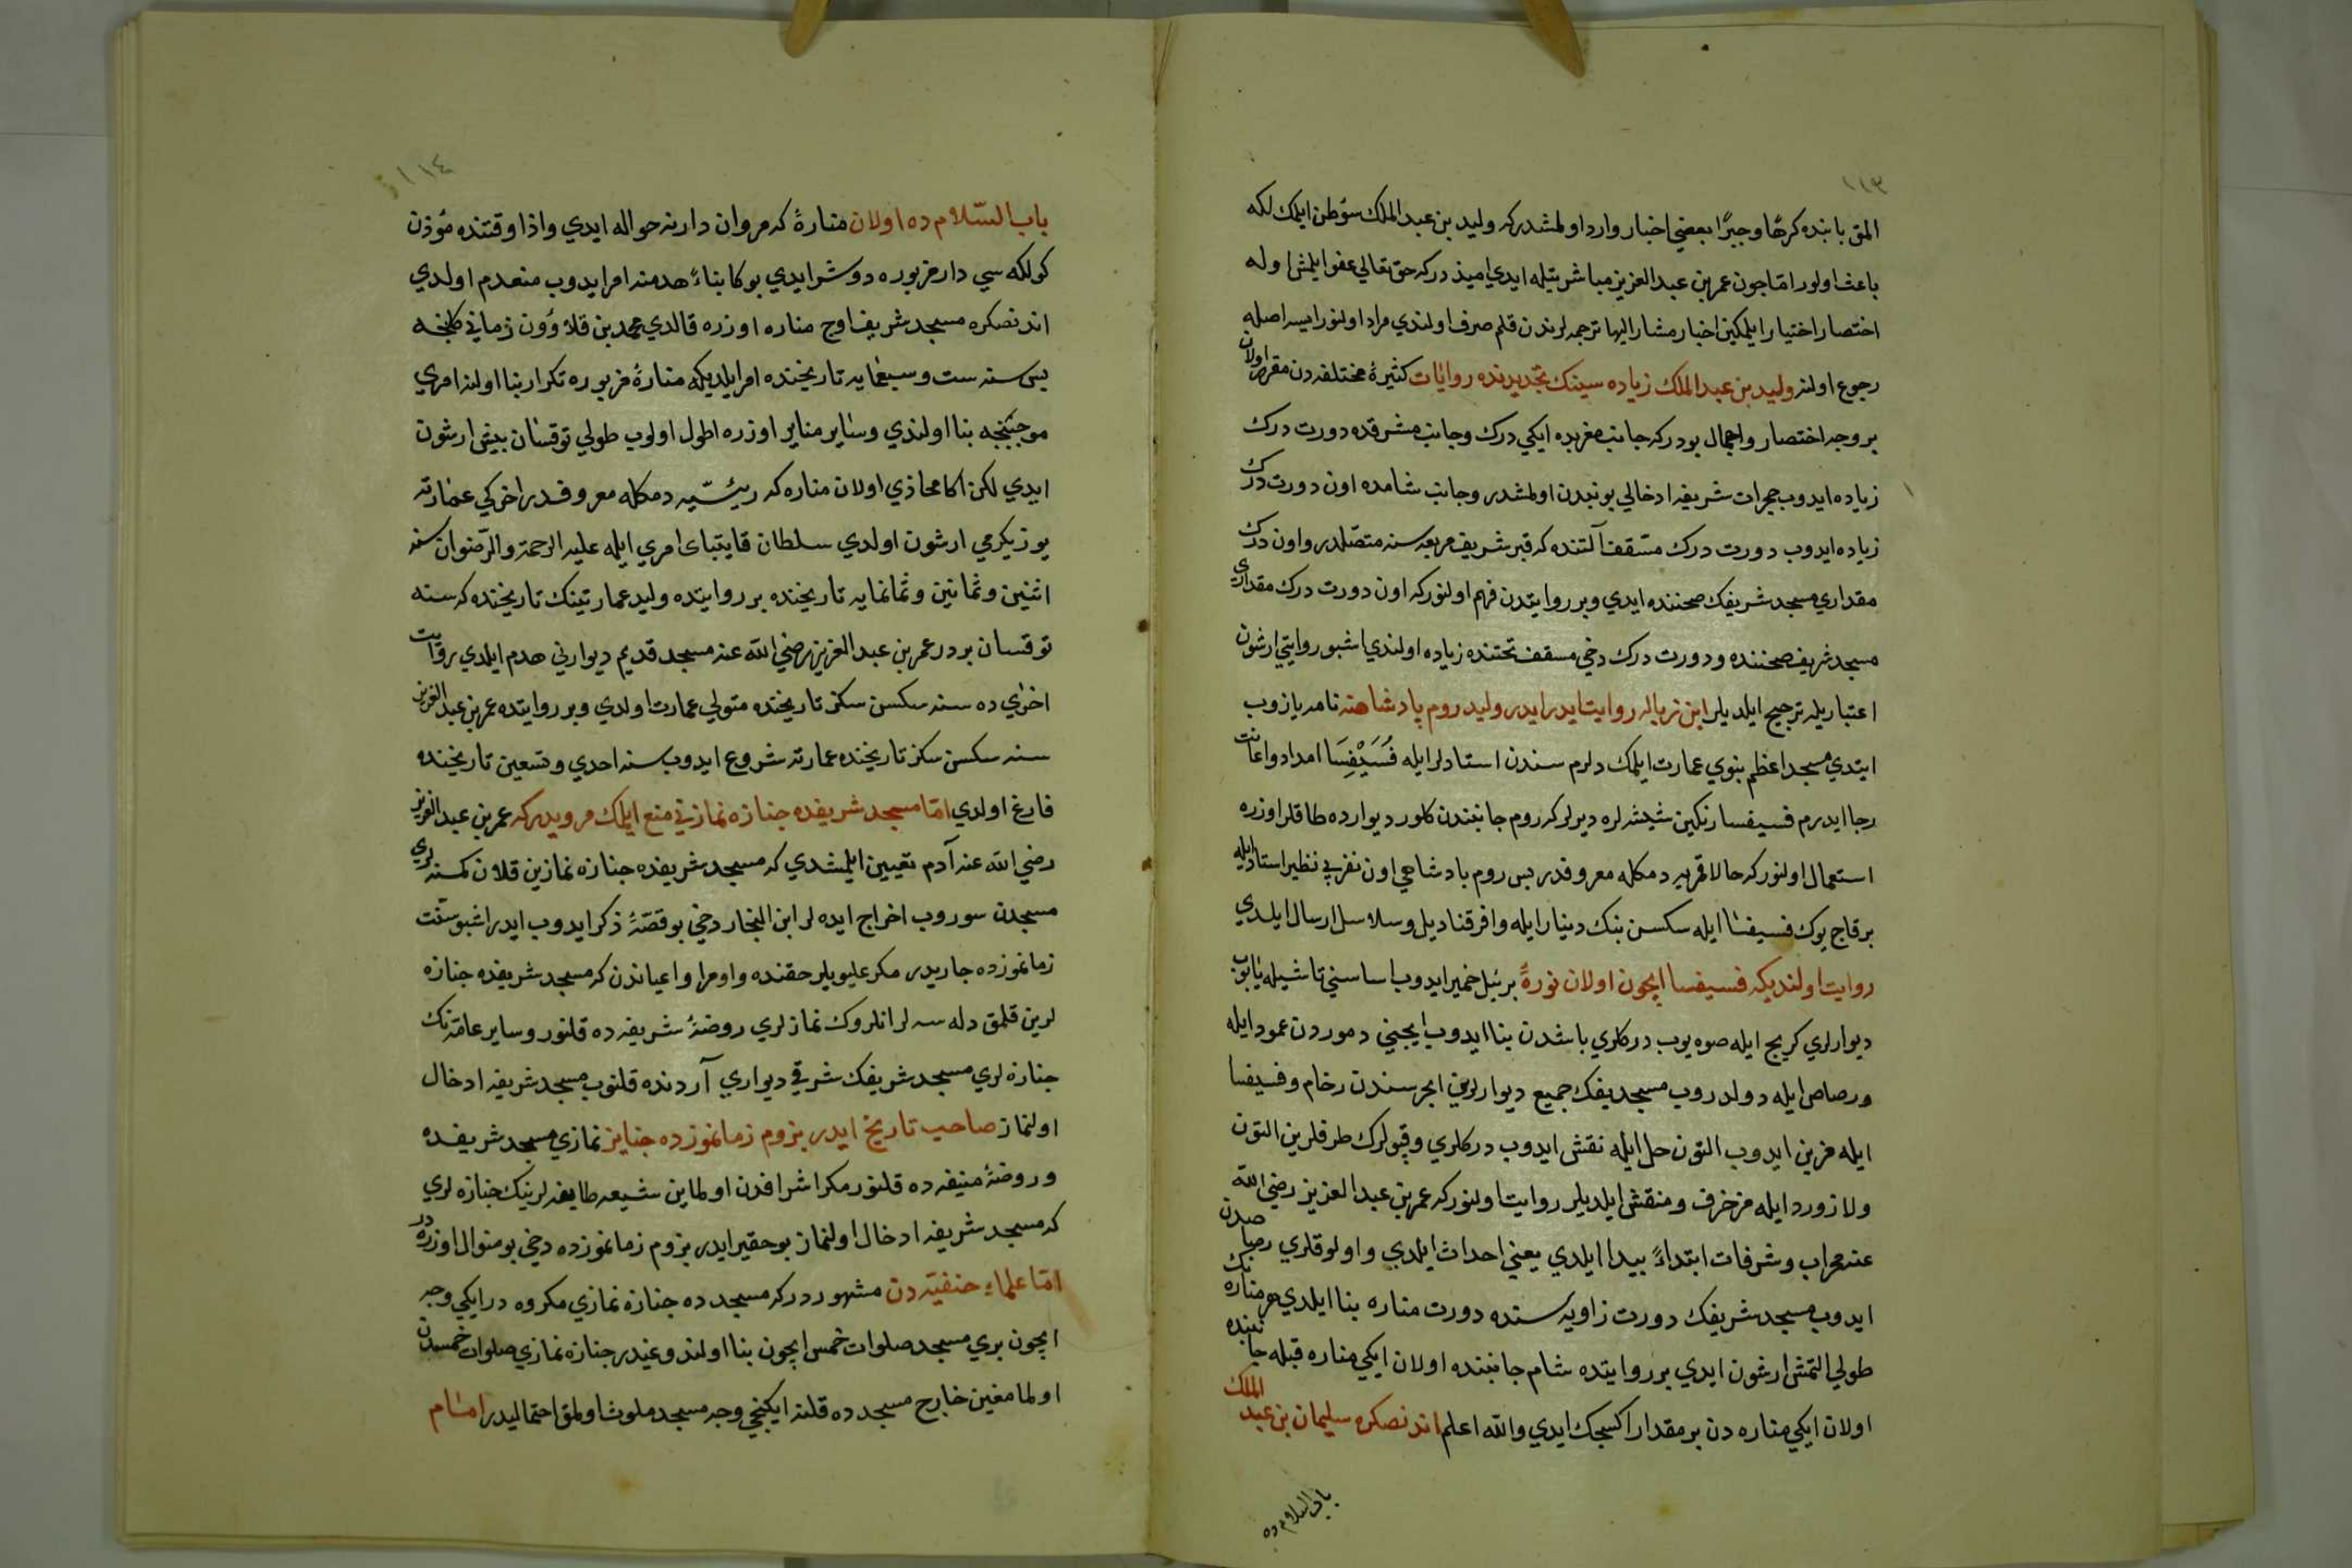 ١١٣
المق بابنده كرهًا وجبرًا بعضي اخبار وارد اولمشدركه وليد بن عبد الملك سؤظن ايلمك لكه
باعث اولور امّا چون عمر بن عبد العزيز مباشرتيله ايدي اميذ دركه حق تعالي عفو ايلمش اوله
اختصار اختيار ايلمكين اخبار مشار اليها ترجمه لرندن قلم صرف اولندي مراد اولنور ايسه اصله
رجوع اولنه وليد بن عبد الملك زياده سينك تجديدنده روايات كثيرهٔ مختلفه دن مقرر اولان
بر وجه اختصار واجمال بودركه جانب مغربده ايكي درك وجانب مشرقده دورت درك
زياده ايدوب حجرات شريفه ادخالي بونجدن اولمشدر وجانب شامده اون دورت درك
زياده ايدوب دورت درك مسقف آلتنده كه قبر شريف مربعه سنه متصلدر واون درك
مقداري مسجد شريفك صحننده ايدي وبر روايتدن فهم اولنوركه اون دورت درك مقداري
مسجد شريف صحننده ودورت درك دخي مسقف تحتنده زياده اولندي اشبو روايتي ارشون
اعتباريله ترجيح ايلديلر ابن زباله روايت ايدر ايدر وليد روم پادشاهنه نامه يازوب
ايتدي مسجد اعظم نبوي عمارت ايلمك دلرم سندن استادلر ايله فُسَيْفِسَا امداد واعانت
رجا ايدرم فسيفسا رنكين شيشه لره ديرلركه روم جانبندن كلور ديوارده طاقلر اوزره
استعمال اولنور كه حالا قمريه دمكله معروفدر پس روم پادشاهي اون نفر بي نظير استاد ايله
بر قاچ يوك فسيفسا ايله سكسن بنك دينار ايله وافر قناديل وسلاسل ارسال ايلدي
روايت اولنديكه فسيفسا ايچون اولان نورهٔ بر ييل خمير ايدوب اساسني تاشيله ياپوب
ديوارلري كريج ايله صوه يوب دركلري باشدن بنا ايدوب ايچيني دموردن عمود ايله
ورصاص ايله دولدروب مسجد يفك جميع ديوارلرين ايچرسندن رخام وفسيفسا
ايله مزين ايدوب التون حل ايله نقش ايدوب دركلري وقپولرك طرفلرين التون
ولازورد ايله مزخرف ومنقش ايلديلر روايت اولنوركه عمر بن عبد العزيز رضي الله
عنه محراب وشرفات ابتداءً پيدا ايلدي يعني احداث ايلدي واولوقلري رصاصدن
ايدوب مسجد شريفك دورت زاويه سنده دورت مناره بنا ايلدي هر مناره نك
طولي التمش ارشون ايدي بر روايتده شام جانبنده اولان ايكي مناره قبله جانبنده
اولان ايكي مناره دن بر مقدار اكسجك ايدي والله اعلم اندنصكره سليمان بن عبد الملك
باب السلام ده
١١٤
باب السّلام ده اولان منارهٔ كه مروان دارنه حواله ايدي واذا وقتنده مؤذن
كولكه سي دار مزبوره دوشر ايدي بوكا بناءً هدمنه امر ايدوب منعدم اولدي
اندنصكره مسجد شريف اوچ مناره اوزره قالدي محمد بن قلاوون زماني كلنجه
پس سنه ست وسبعمايه تاريخنده امر ايلديكه منارهٔ مزبوره تكرار بنا اولنه امري
موجبنجه بنا اولندي وساير مناير اوزره اطول اولوب طولي توقسان بيش ارشون
ايدي لكن اكا محاذي اولان مناره كه رئيسّيه دمكله معروفدر اخركي عمارته
يوز يكرمي ارشون اولدي سلطان قايتباى امري ايله عليه الرحمة والرّضوان سنه
اثنين وثمانين وثمانمايه تاريخنده بر روايتده وليد عمارتينك تاريخنده كه سنه
توقسان بردر عمر بن عبد العزيز رضي الله عنه مسجد قديم ديوارني هدم ايلدي روايت
اخراي ده سنه سكسن سكز تاريخنده متولي عمارت اولدي وبر روايتده عمر بن عبد العزيز
سنه سكسن سكز تاريخنده عمارته شروع ايدوب سنه احدي وتسعين تاريخنده
فارغ اولدي امّا مسجد شريفده جنازه نمازني منع ايلمك مرويدركه عمر بن عبد العزيز
رضي الله عنه آدم تعيين ايلمشدي كه مسجد شريفده جنازه نمازين قلان كمسنه لري
مسجدن سوروب اخراج ايده لر ابن النجار دخي بو قصّهٔ ذكر ايدوب ايدر اشبو سنّت
زمانموزده جاريدر مكر عليويلر حقنده واومرا واعياندن كه مسجد شريفده جنازه
لرين قلمق دله سه لر انلروك نمازلري روضهٔ شريفه ده قلنور وساير عامّه نك
جنازه لري مسجد شريفك شرقي ديواري آردنده قلنوب مسجد شريفه ادخال
اولنماز صاحب تاريخ ايدر بزوم زمانموزده جنايز نمازي مسجد شريفده
وروضهٔ منيفه ده قلنور مكر اشرافدن اولماين شيعه طايفه لرينك جنازه لري
كه مسجد شريفه ادخال اولنماز بو حقير ايدر بزوم زمانموزده دخي بو منوال اوزره در
امّا علماءِ حنفيّه دن مشهوردركه مسجد ده جنازه نمازي مكروه در ايكي وجه
ايچون بري مسجد صلوات خمس ايچون بنا اولندوغيدر جنازه نمازي صلوات خمسدن
اولمامغين خارج مسجد ده قلنه ايكنجي وجه مسجد ملوث اولمق احتماليدر امام